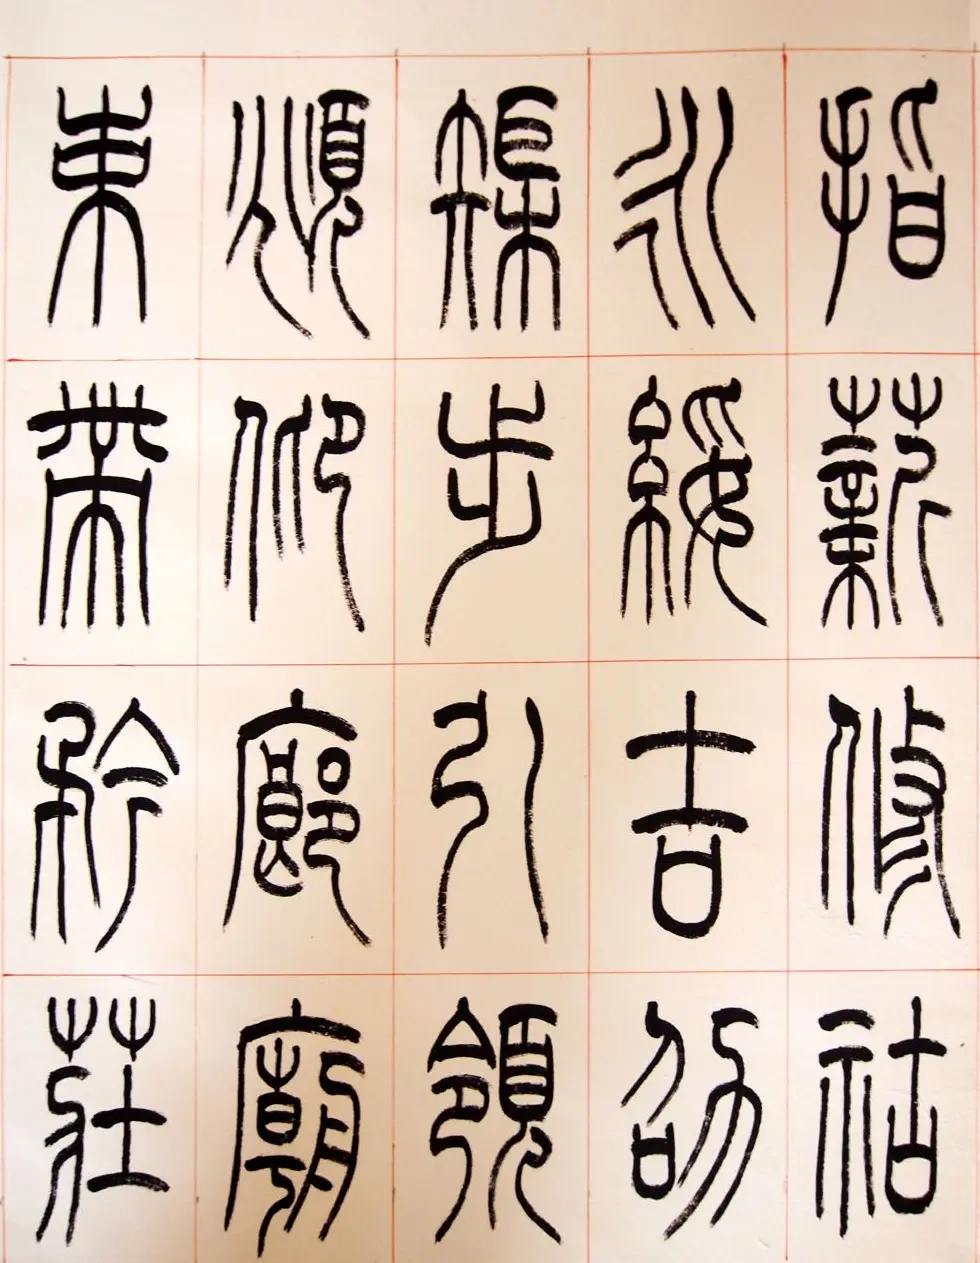 指薪修祜
永綏吉劭
榘步引領
頫仰廊廟
束帶矜莊